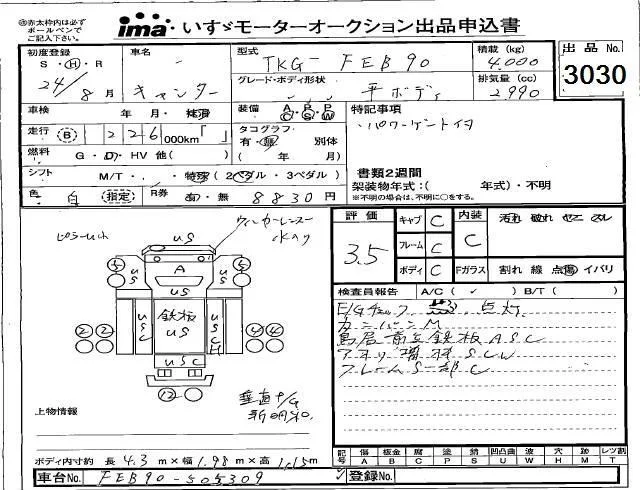 ㊟赤太枠内は必ず
ボールペンで
ご記入下さい。
ima いすゞモーターオークション出品申込書
初度登録
S・H・R
24/8月
車名
キャンター
型式
TKG-FEB90
積載(kg)
4,000
グレード・ボディ形状
平ボディ
排気量(cc)
2990
出品No.
3030
車検
年 月・抹消
装備
A/C P/S P/W
特記事項
・パワーゲート付
走行
B 226 000km「 」
タコグラフ
有・無 別体
( 年 月)
燃料
G・D・HV 他( )
書類2週間
シフト
M/T・ ・特殊(2ペダル・3ペダル)
架装物年式:( 年式)・不明
※不明の場合は、不明に○をする。
色
白 (指定)
R券
有・無 8830円
ウィンカーレンズ
us
A
us
us
us
鉄板
us
usc
usc
⑤ ⑤
② ② ④ ④
⑫
評価
3.5
キャブ C
フレーム C
ボディ C
内装
C
Fガラス
汚れ 破れ ヤニ スレ
割れ 線 点傷 イバリ
検査員報告
A/C( ✓ ) B/T( )
E/Gチェック 点灯
カンバンM
鳥居前立鉄板ASC
アオリ SCW
フレームS一部C
上物情報
垂直P/G
ボディ内寸約 長 4.3 m×幅 1.98 m×高 1.15m
記号
傷 A
板金 B
腐 C
塗 P
錆 S
凹凸曲 U
波 W
穴 H
跡 M
レツ割 T
車台No.
FEB90-505309
登録No.